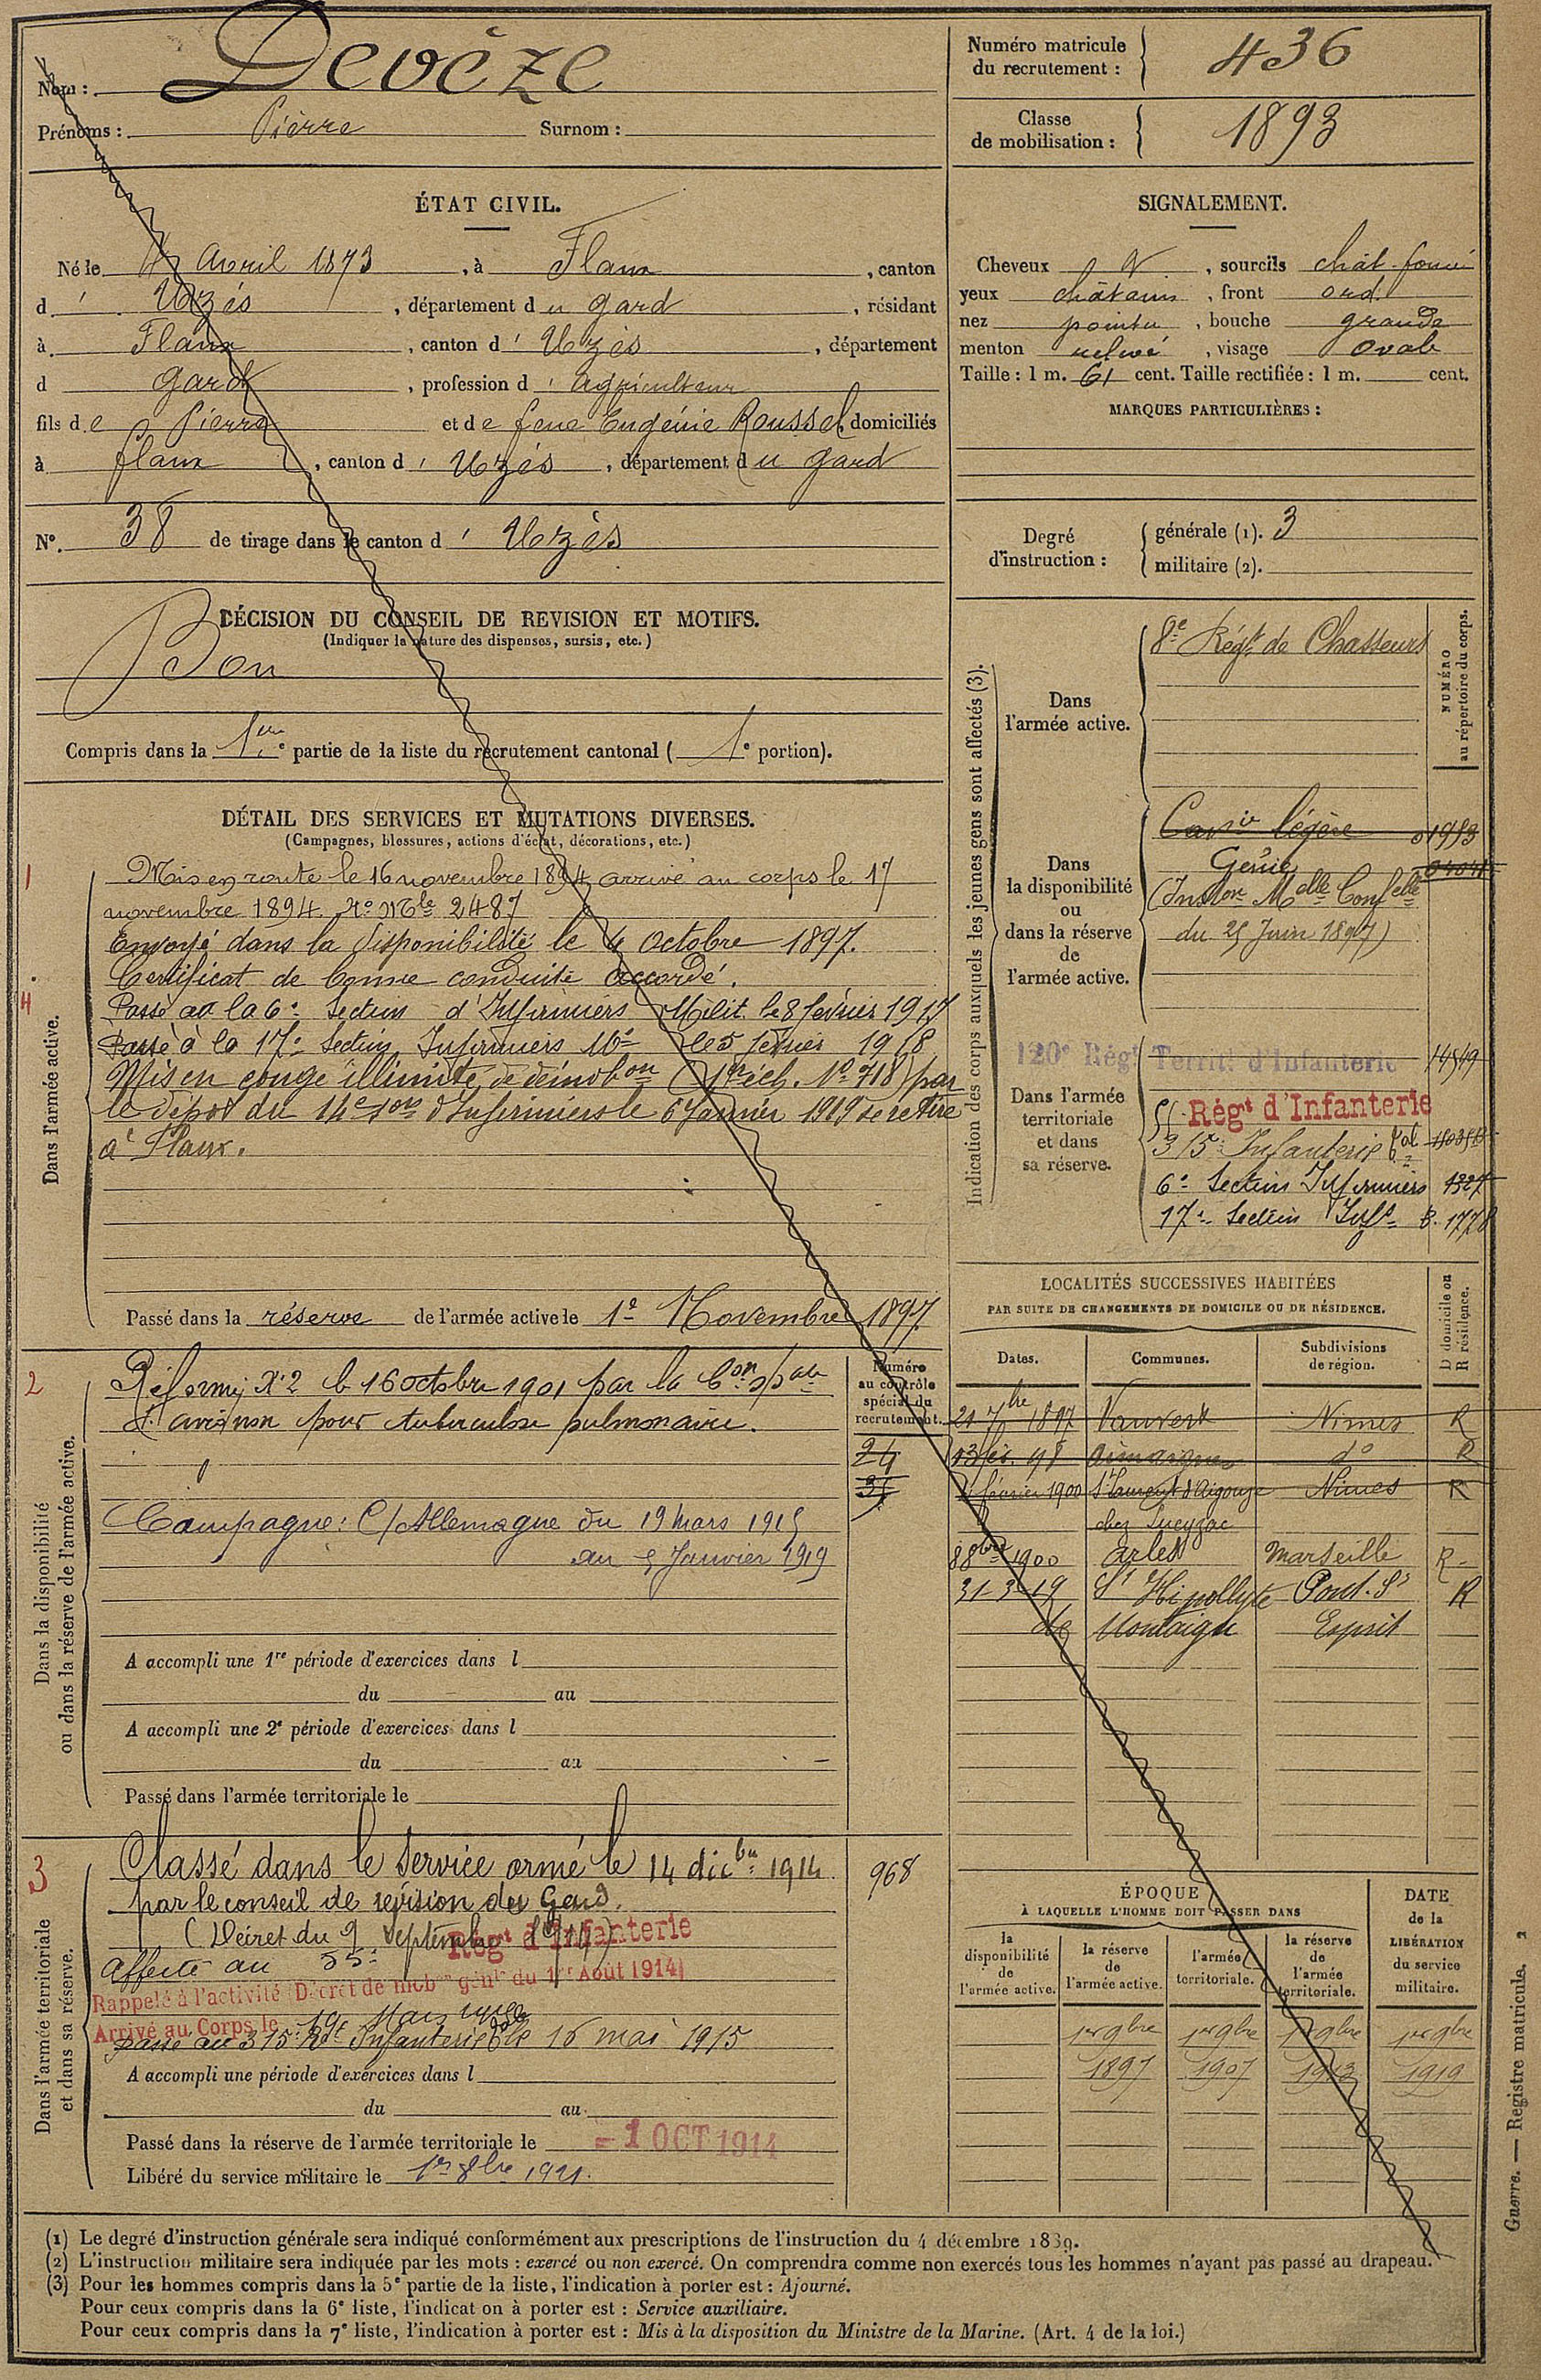 Nom : Devèze
Prénoms : Pierre Surnom :
Numéro matricule du recrutement : 436
Classe de mobilisation : 1893
ÉTAT CIVIL.
Né le 4 Avril 1873, à Flaux, canton
d' Uzès, département du Gard, résidant
à Flaux, canton d' Uzès, département
d Gard, profession d' agriculteur
fils de Pierre et de feue Eugénie Roussel, domiciliés
à Flaux, canton d' Uzès, département du Gard
N°. 38 de tirage dans le canton d' Uzès
SIGNALEMENT.
Cheveux N, sourcils chât. foncé
yeux châtains, front ord.
nez pointu, bouche grande
menton relevé, visage ovale
Taille : 1 m. 61 cent. Taille rectifiée : 1 m. cent.
MARQUES PARTICULIÈRES :
Degré d'instruction : générale (1). 3
militaire (2).
DÉCISION DU CONSEIL DE REVISION ET MOTIFS.
(Indiquer la nature des dispenses, sursis, etc.)
Bon
Compris dans la 1ere partie de la liste du recrutement cantonal ( 1e portion).
DÉTAIL DES SERVICES ET MUTATIONS DIVERSES.
(Campagnes, blessures, actions d'éclat, décorations, etc.)
Dans l'armée active.
1
Mis en route le 16 novembre 1894, arrivé au corps le 17
novembre 1894. No Mle 2487
Envoyé dans la disponibilité le 4 Octobre 1897.
Certificat de bonne conduite accordé.
4
Passé à la 6e Section d'Infirmiers Milit. le 8 février 1917
Passé à la 17e Section Infirmiers Mre le 5 février 1918
Mis en congé illimité de démobon (1er éch. No 718) par
le dépôt du 14e son d'Infirmiers le 6 Janvier 1919 se retire
à Flaux.
Passé dans la réserve de l'armée active le 1er Novembre 1897
Dans la disponibilité ou dans la réserve de l'armée active.
2
Réformé N°2 le 16 octobre 1901 par la Con spale
d'avignon pour tuberculose pulmonaire.
Campagne : C/Allemagne du 19 Mars 1915
au 5 Janvier 1919
A accompli une 1re période d'exercices dans l
du au
A accompli une 2e période d'exercices dans l
du au
Passé dans l'armée territoriale le
Numéro au contrôle spécial du recrutement.
24
35
968
Dans l'armée territoriale et dans sa réserve.
3
Classé dans le service armé le 14 décbre 1914
par le conseil de révision du Gard.
(Décret du 9 septembre 1914)
Affecté au 55e Régt d'Infanterie
Rappelé à l'activité (Décret de mobon génle du 1er Août 1914)
Arrivé au Corps le 19 Mars 1915
Passé au 315e Rt Infanterie tal le 16 mai 1915
A accompli une période d'exercices dans l
du au
Passé dans la réserve de l'armée territoriale le - 1 OCT 1914
Libéré du service militaire le 1er 8bre 1921.
Indication des corps auxquels les jeunes gens sont affectés (3).
NUMÉRO au répertoire du corps.
Dans l'armée active.
8e Régt de Chasseurs
Dans la disponibilité ou dans la réserve de l'armée active.
Cavie légère
Génie
(Inston Melle Confelle
du 25 Juin 1897)
Dans l'armée territoriale et dans sa réserve.
120e Régt Territ. d'Infanterie 14549
55e Régt d'Infanterie
315e Infanterie tal
6e Section Infirmiers 1327
17e Section Infrs
LOCALITÉS SUCCESSIVES HABITÉES
PAR SUITE DE CHANGEMENTS DE DOMICILE OU DE RÉSIDENCE.
Dates. Communes. Subdivisions de région. D domicile ou R résidence.
21 7bre 1897 Vauvert Nimes R
13 fév. 98 Aimargues do R
février 1900 St Laurent d'Aigouze Nimes R
chez
8 8bre 1900 Arles Marseille R
31-3-19 St Hipollyte Pont-St R
de Montaigu Esprit
ÉPOQUE
À LAQUELLE L'HOMME DOIT PASSER DANS
DATE de la LIBÉRATION du service militaire.
la disponibilité de l'armée active. la réserve de l'armée active. l'armée territoriale. la réserve de l'armée territoriale.
1er 9bre 1er 9bre 1er 9bre 1er 9bre
1897 1907 1913 1919
(1) Le degré d'instruction générale sera indiqué conformément aux prescriptions de l'instruction du 4 décembre 1889.
(2) L'instruction militaire sera indiquée par les mots : exercé ou non exercé. On comprendra comme non exercés tous les hommes n'ayant pas passé au drapeau.
(3) Pour les hommes compris dans la 5e partie de la liste, l'indication à porter est : Ajourné.
Pour ceux compris dans la 6e liste, l'indicat on à porter est : Service auxiliaire.
Pour ceux compris dans la 7e liste, l'indication à porter est : Mis à la disposition du Ministre de la Marine. (Art. 4 de la loi.)
Guerre. — Registre matricule. 2